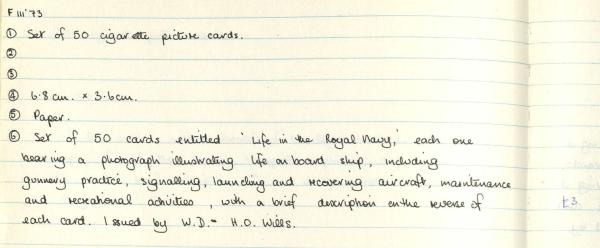 F III '73
① Set of 50 cigarette picture cards.
②
③
④ 6.8 cm. x 3.6 cm.
⑤ Paper.
⑥ Set of 50 cards entitled 'Life in the Royal Navy,' each one
bearing a photograph illustrating life on board ship, including
gunnery practice, signalling, launching and recovering aircraft, maintenance
and recreational activities, with a brief description on the reverse of
each card. Issued by W.D. - H.O. Wills.
£3.